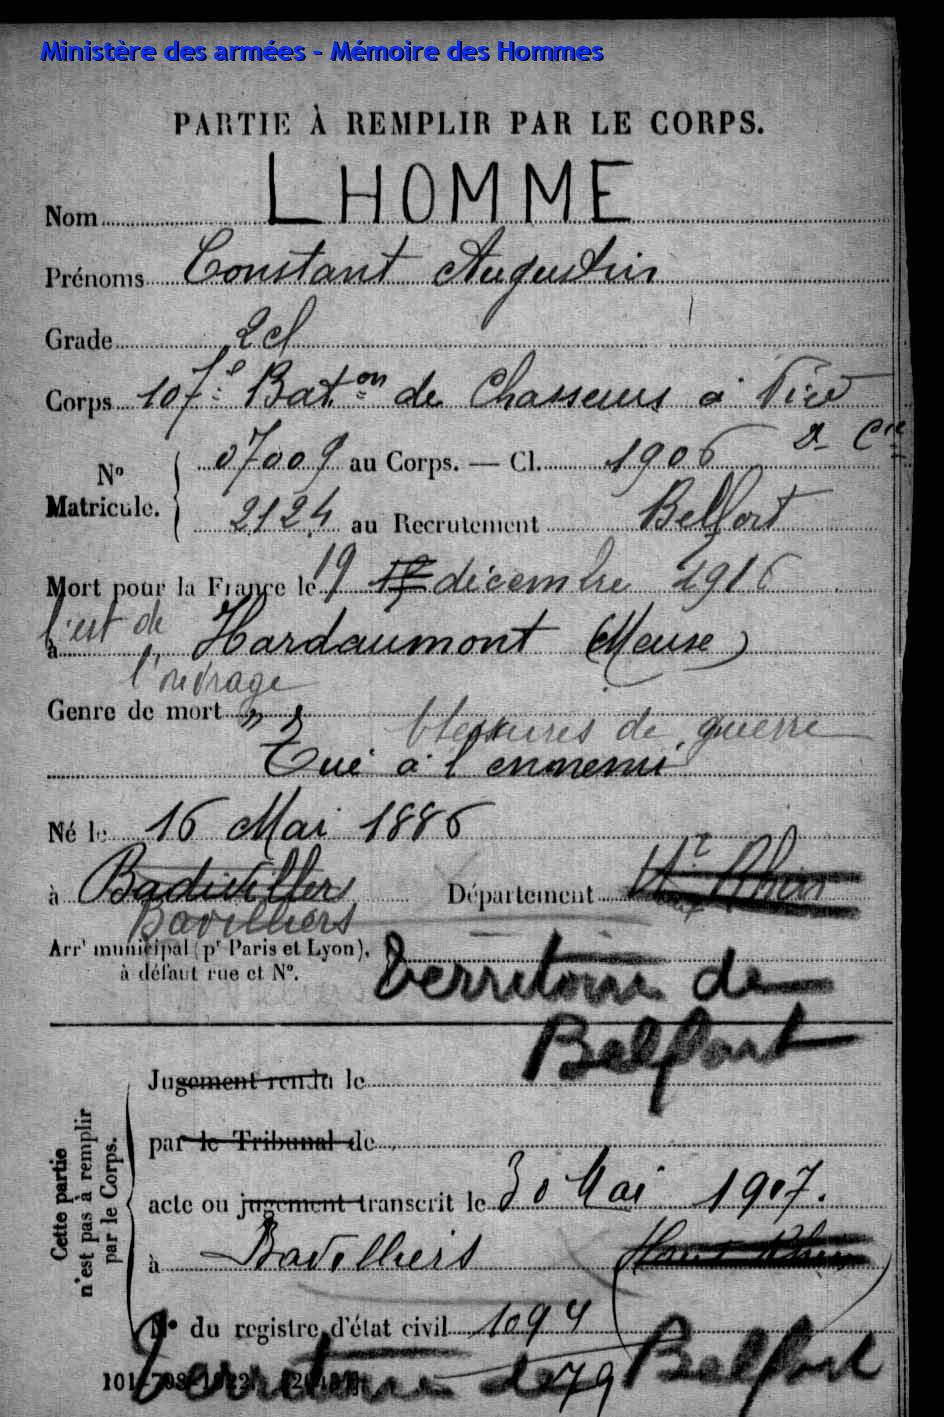 Ministère des armées - Mémoire des Hommes
PARTIE À REMPLIR PAR LE CORPS.
Nom LHOMME
Prénoms Constant Augustin
Grade 2 cl
Corps 107e Baton de Chasseurs à Pied
Cie
No Matricule. { 07009 au Corps. — Cl. 1906
2124 au Recrutement Belfort
Mort pour la France le 19 décembre 1916
l'est de
à Hardaumont (Meuse)
l'ouvrage
Genre de mort blessures de guerre
Tué à l'ennemi
Né le 16 Mai 1886
à Badivillers Département Ht Rhin
Bavilliers
Arrt municipal (pr Paris et Lyon),
à défaut rue et No.
Territoire de
Belfort
Cette partie n'est pas à remplir par le Corps.
Jugement rendu le
par le Tribunal de
acte ou jugement transcrit le 30 Mai 1907.
à Bavilliers Haut Rhin
No du registre d'état civil 1094
Territoire de Belfort
79